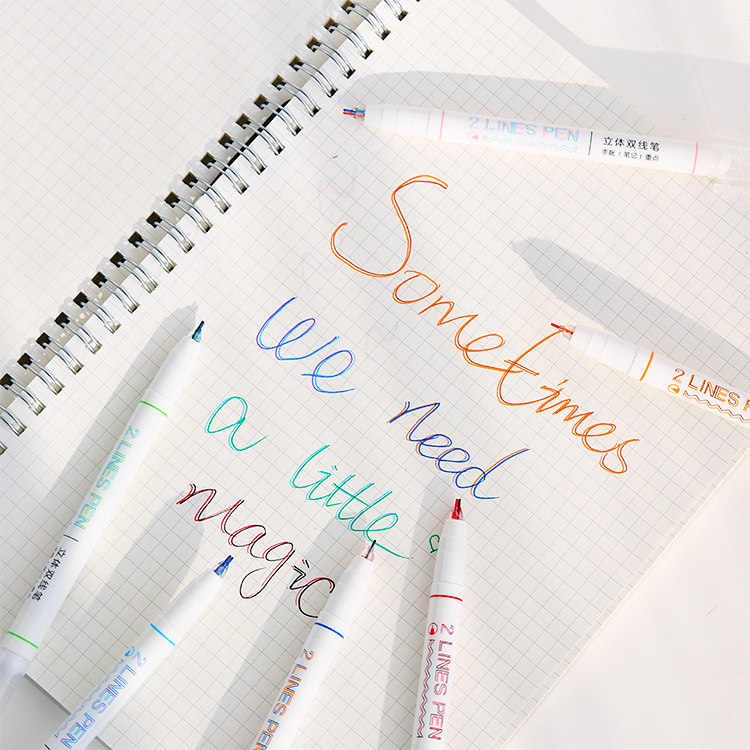 2 LINES PEN
立体双线笔
手账 | 笔记 | 重点
Sometimes
We need
a little
magic
2 LINES P
2 LINES PEN
立体双线笔
2 LINES PEN
2 LINES PEN
2 LINES PEN